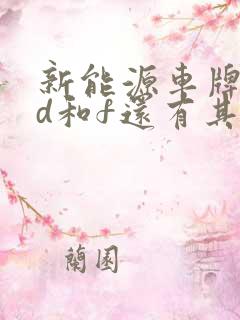 新能源車牌
d和f還有其
蘭園